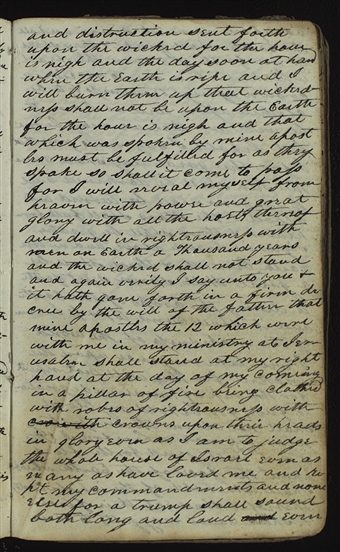 and distruction sent forth
upon the wickrd for the hour
is nigh and the day soon at han
when the Earth is ripe and I
will burn them up that wickrd
ness shall not be upon the Earth
for the hour is nigh and that
which was spoken by mine apost
les must be fulfilled for as they
spoke so shall it come to pass
for I will reveal myself from
heaven with power and great
glory with all the hosts thereof
and dwell in righteousness with
men on Earth a Thousand years
and the wicked shall not stand
and again verily I say unto you &
it hath gone forth in a firm de
cree by the will of the father that
mine apostles the 12 which were
with me in my ministry at Jer
usalem shall stand at my right
hand at the day of my coming
in a pillar of fire being clothed
with robes of righteousness with
crowns upon their heads
in glory even as I am to judge
the whole house of Israel even as
many as have loved me and ke
pt my commandments and none
else for a trump shall sound
both long and loud and even